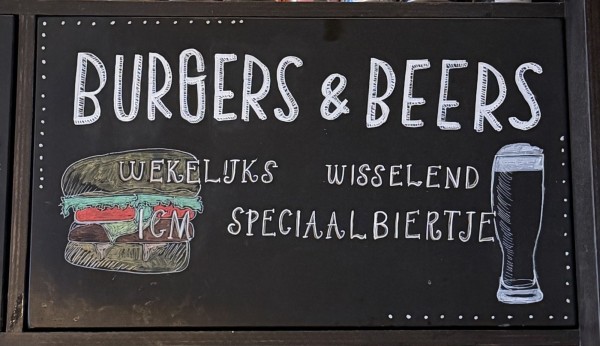 BURGERS & BEERS
WEKELIJKS WISSELEND
ICM SPECIAALBIERTJE